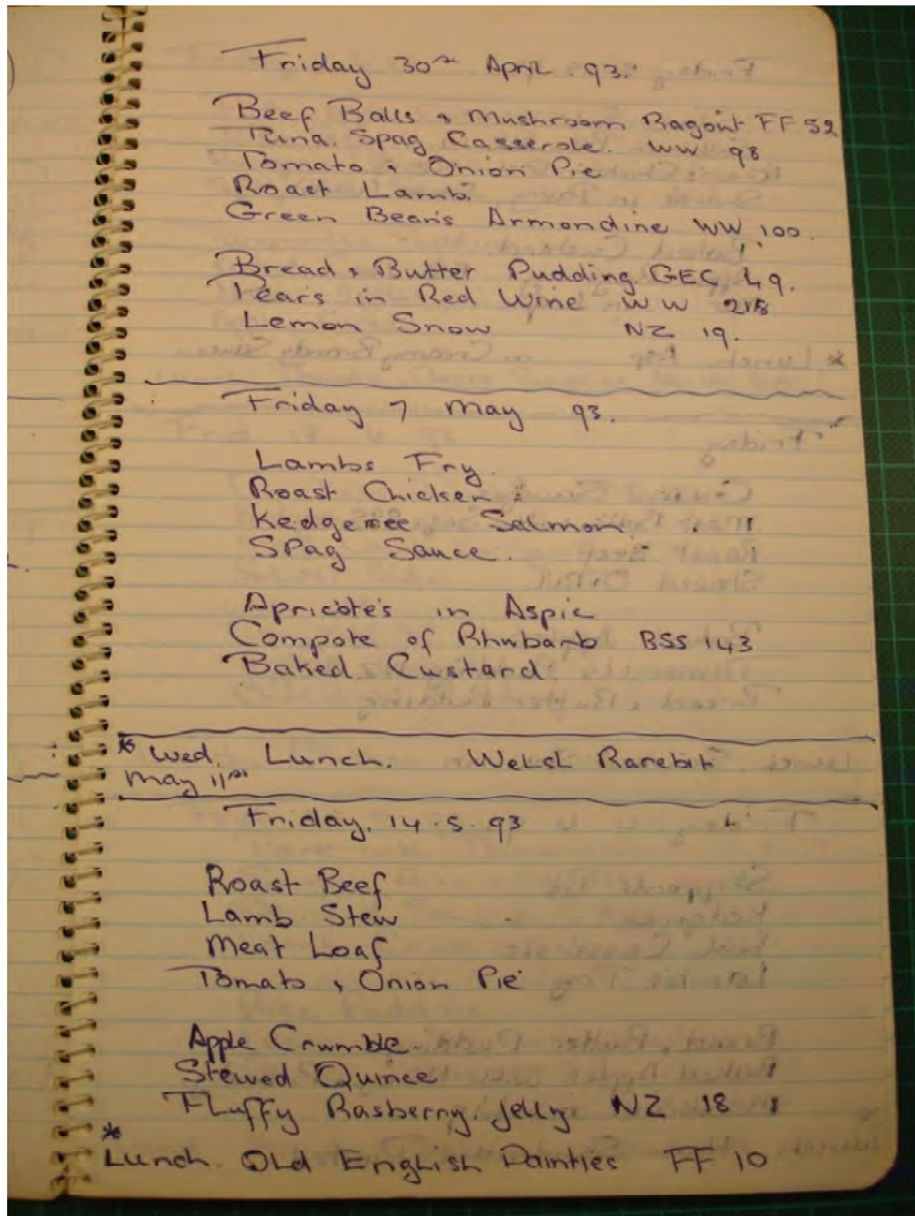 Friday 30th April. 93.
Beef Balls & Mushroom Ragout FF 52
Tuna. Spag Casserole. WW 98
Tomato & Onion Pie
Roast Lamb
Green Bean's Armondine WW 100.
Bread & Butter Pudding GEC 49.
Pears in Red Wine WW 218
Lemon Snow NZ 19.
Friday 7 May 93.
Lambs Fry
Roast Chicken
Kedgeree Salmon
SPag Sauce.
Apricote's in Aspic
Compote of Rhubarb BSS 143
Baked Custard
* Wed. Lunch. Welsh Rarebit
May 11th
Friday. 14.5.93
Roast Beef
Lamb Stew
Meat Loaf
Tomato & Onion Pie
Apple Crumble
Stewed Quince
Fluffy Rasberry Jelly NZ 18
*
Lunch. Old English Dainties FF 10